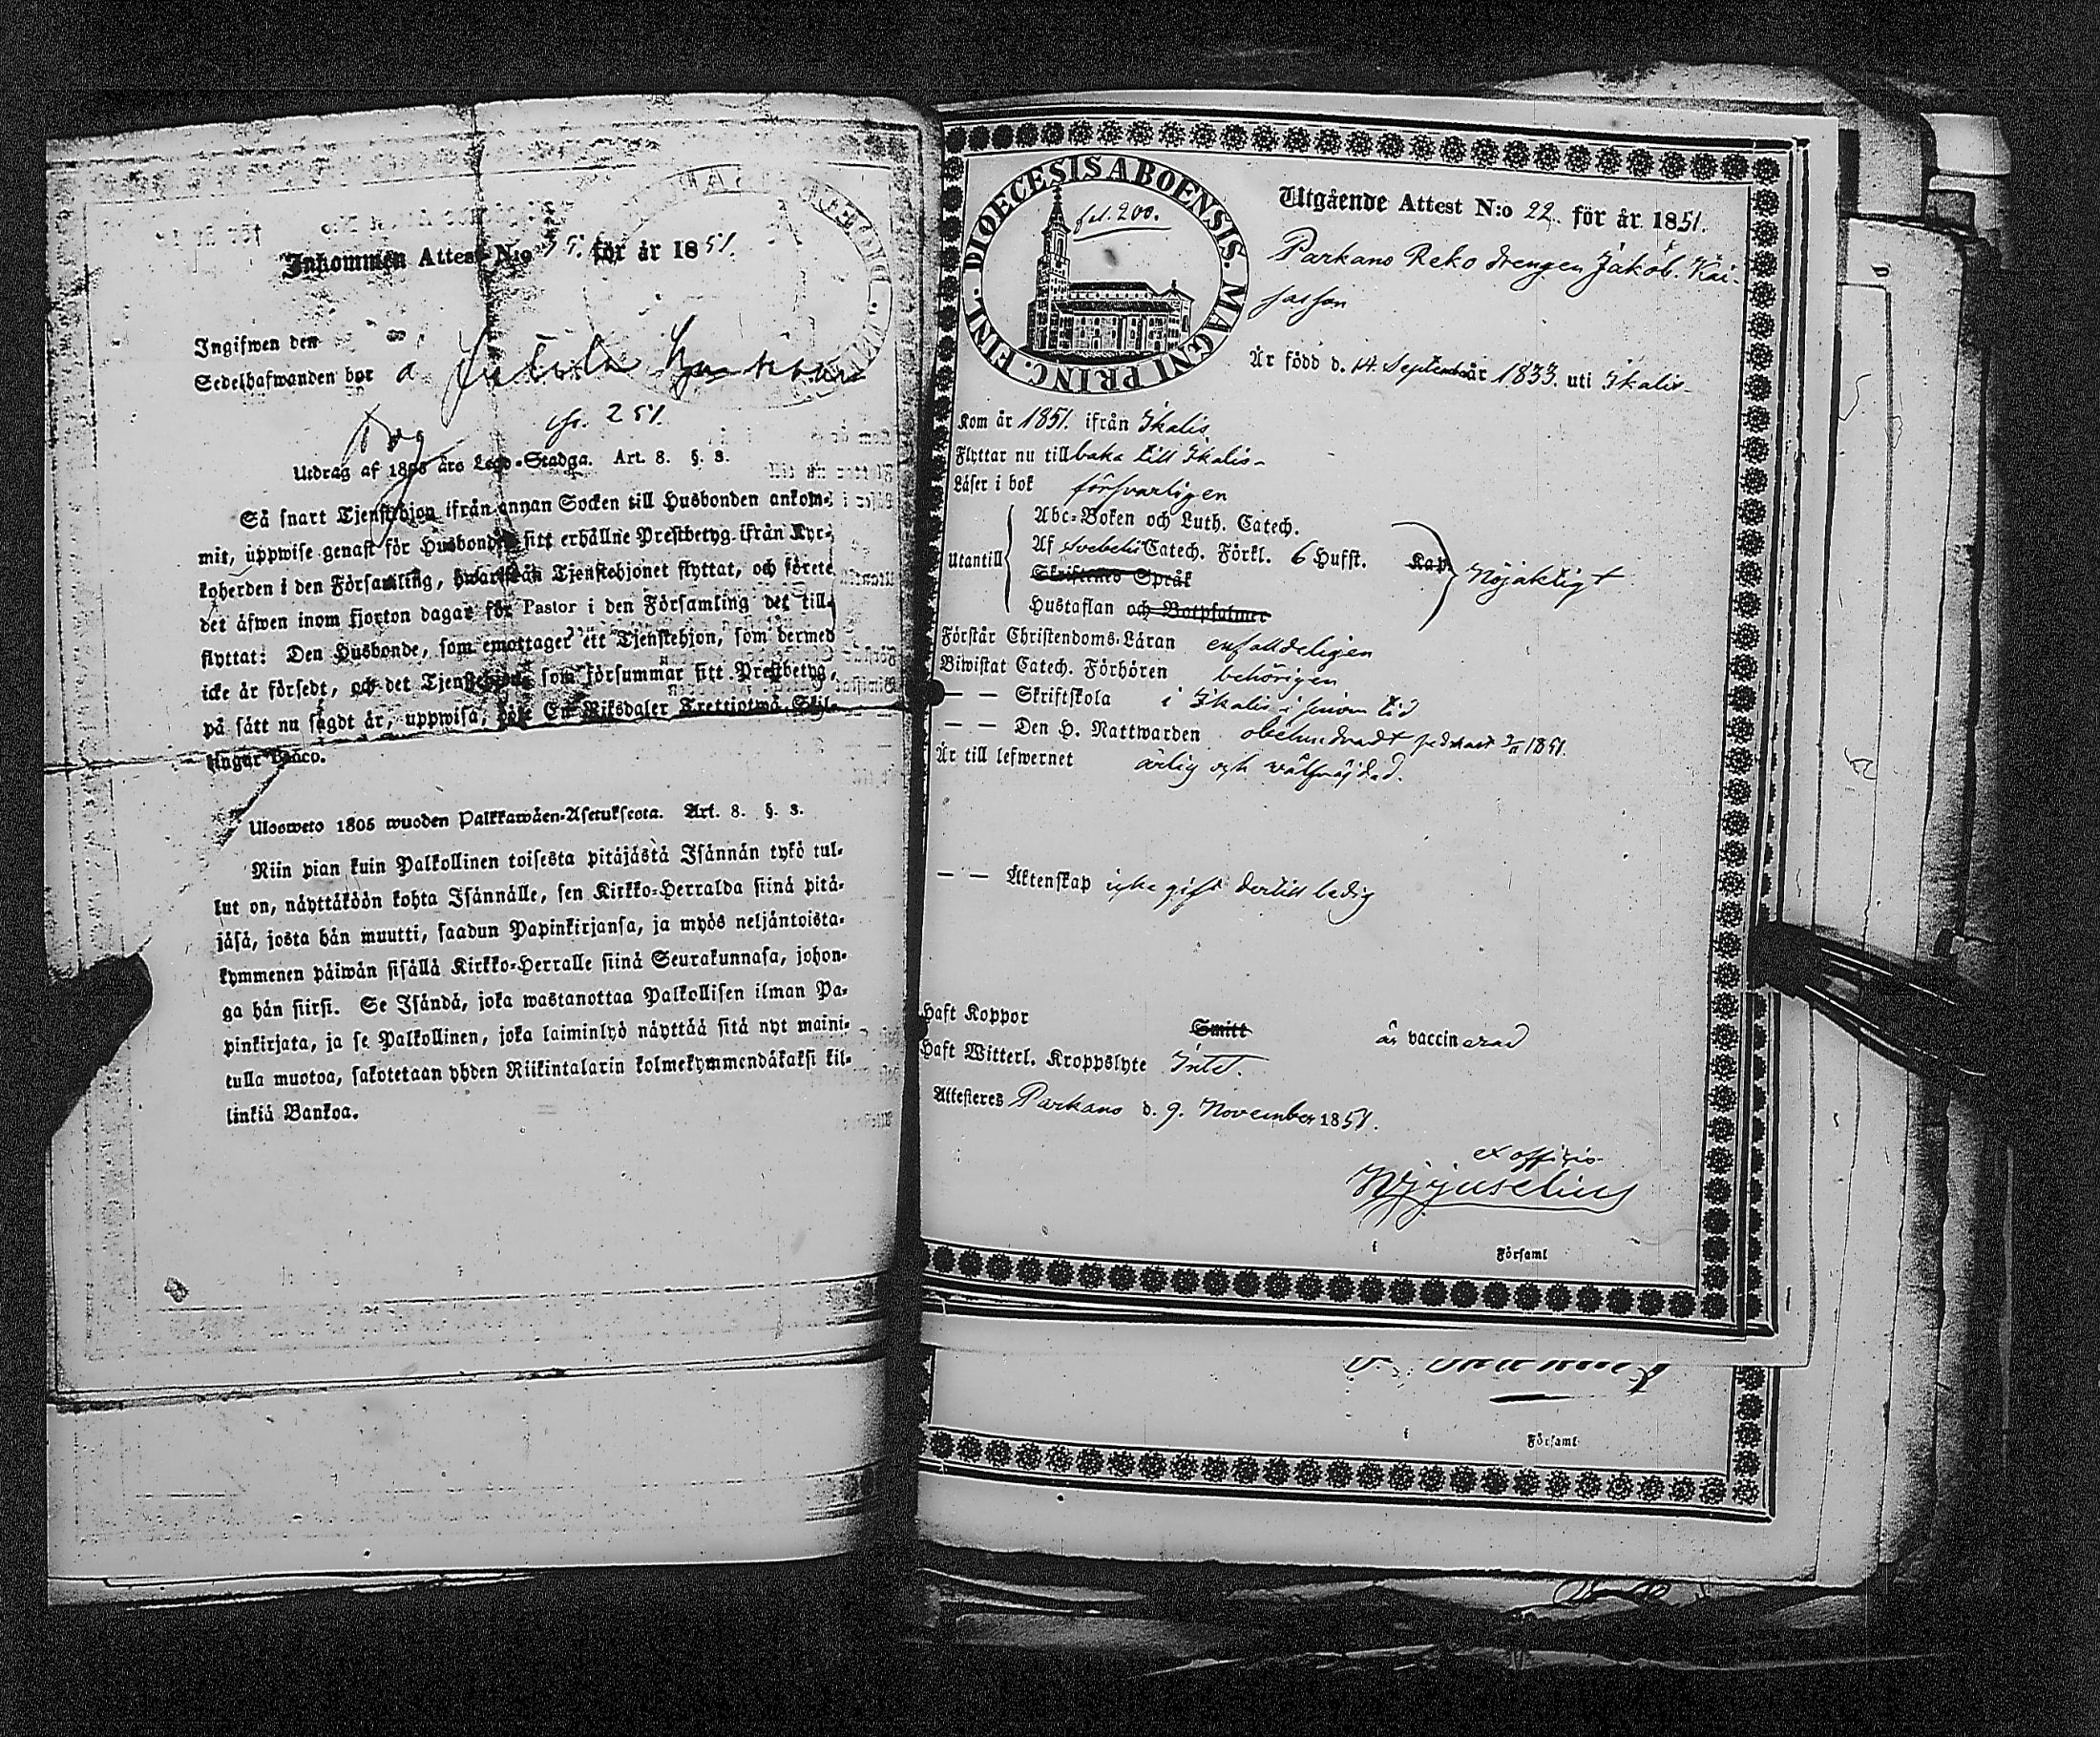 Inkommen Attest N:o 55. för år 1851.
Ingifwen den
Sedelhafwanden bor a
fr. 251.
Utdrag af 1805 års Lego-Stadga. Art. 8. §. 3.
Så snart Tjenstehjon ifrån annan Socken till Husbonden ankom-
mit, uppwise genast för Husbonden sitt erhållne Prestbetyg ifrån Kyr-
koherden i den Församling, hwarifrån Tjenstehjonet flyttat, och förete
det äfwen inom fjorton dagar för Pastor i den Församling det till-
flyttat: Den Husbonde, som emottager ett Tjenstehjon, som dermed
icke är försedt, och det Tjenstehjon som försummar sitt Prestbetyg,
på sätt nu sagdt är, uppwisa, böte En Riksdaler Trettiotwå Skil-
lingar Banco.
Ulosweto 1805 wuoden Palkkawäen-Asetuksesta. Art. 8. §. 3.
Niin pian kuin Palkollinen toisesta pitäjästä Isännän tykö tul-
lut on, näyttäköön kohta Isännälle, sen Kirkko-Herralda siinä pitä-
jäsä, josta hän muutti, saadun Papinkirjansa, ja myös neljäntoista-
kymmenen päiwän sisällä Kirkko-Herralle siinä Seurakunnasa, johon-
ga hän siirsi. Se Isändä, joka wastanottaa Palkollisen ilman Pa-
pinkirjata, ja se Palkollinen, joka laiminlyö näyttää sitä nyt maini-
tulla muotoa, sakotetaan yhden Riikintalarin kolmekymmendäkaksi kil-
linkiä Bankoa.
DIOECESIS ABOENSIS. MAGNI PRINC. FINL.
fol. 200.
Utgående Attest N:o 22. för år 1851.
Parkano Reko drengen Jakob Kai-
sasson
Är född d. 14. September år 1833. uti Ikalis
Kom år 1851. ifrån Ikalis
Flyttar nu tillbaka till Ikalis
Läser i bok försvarligen
Utantill
Abc-Boken och Luth. Catech.
Af Svebelii Catech. Förkl. 6 Hufst. Kap.
Skriftenes Språk
Hustaflan och Botpsalmer
Nöjaktigt
Förstår Christendoms-Läran enfalldeligen
Biwistat Catech. Förhören behörigen
— — Skriftskola i Ikalis i sinom tid
— — Den H. Nattwarden obehindradt sednast 2/11 1851.
Är till lefwernet ärlig och välfräjdad.
— — Äktenskap icke gift dertill ledig
Haft Koppor Smitt är vaccinerad
Haft Witterl. Kroppslyte Intet.
Attesteres Parkano d. 9. November 1851.
ex officio
i Församl
i Församl